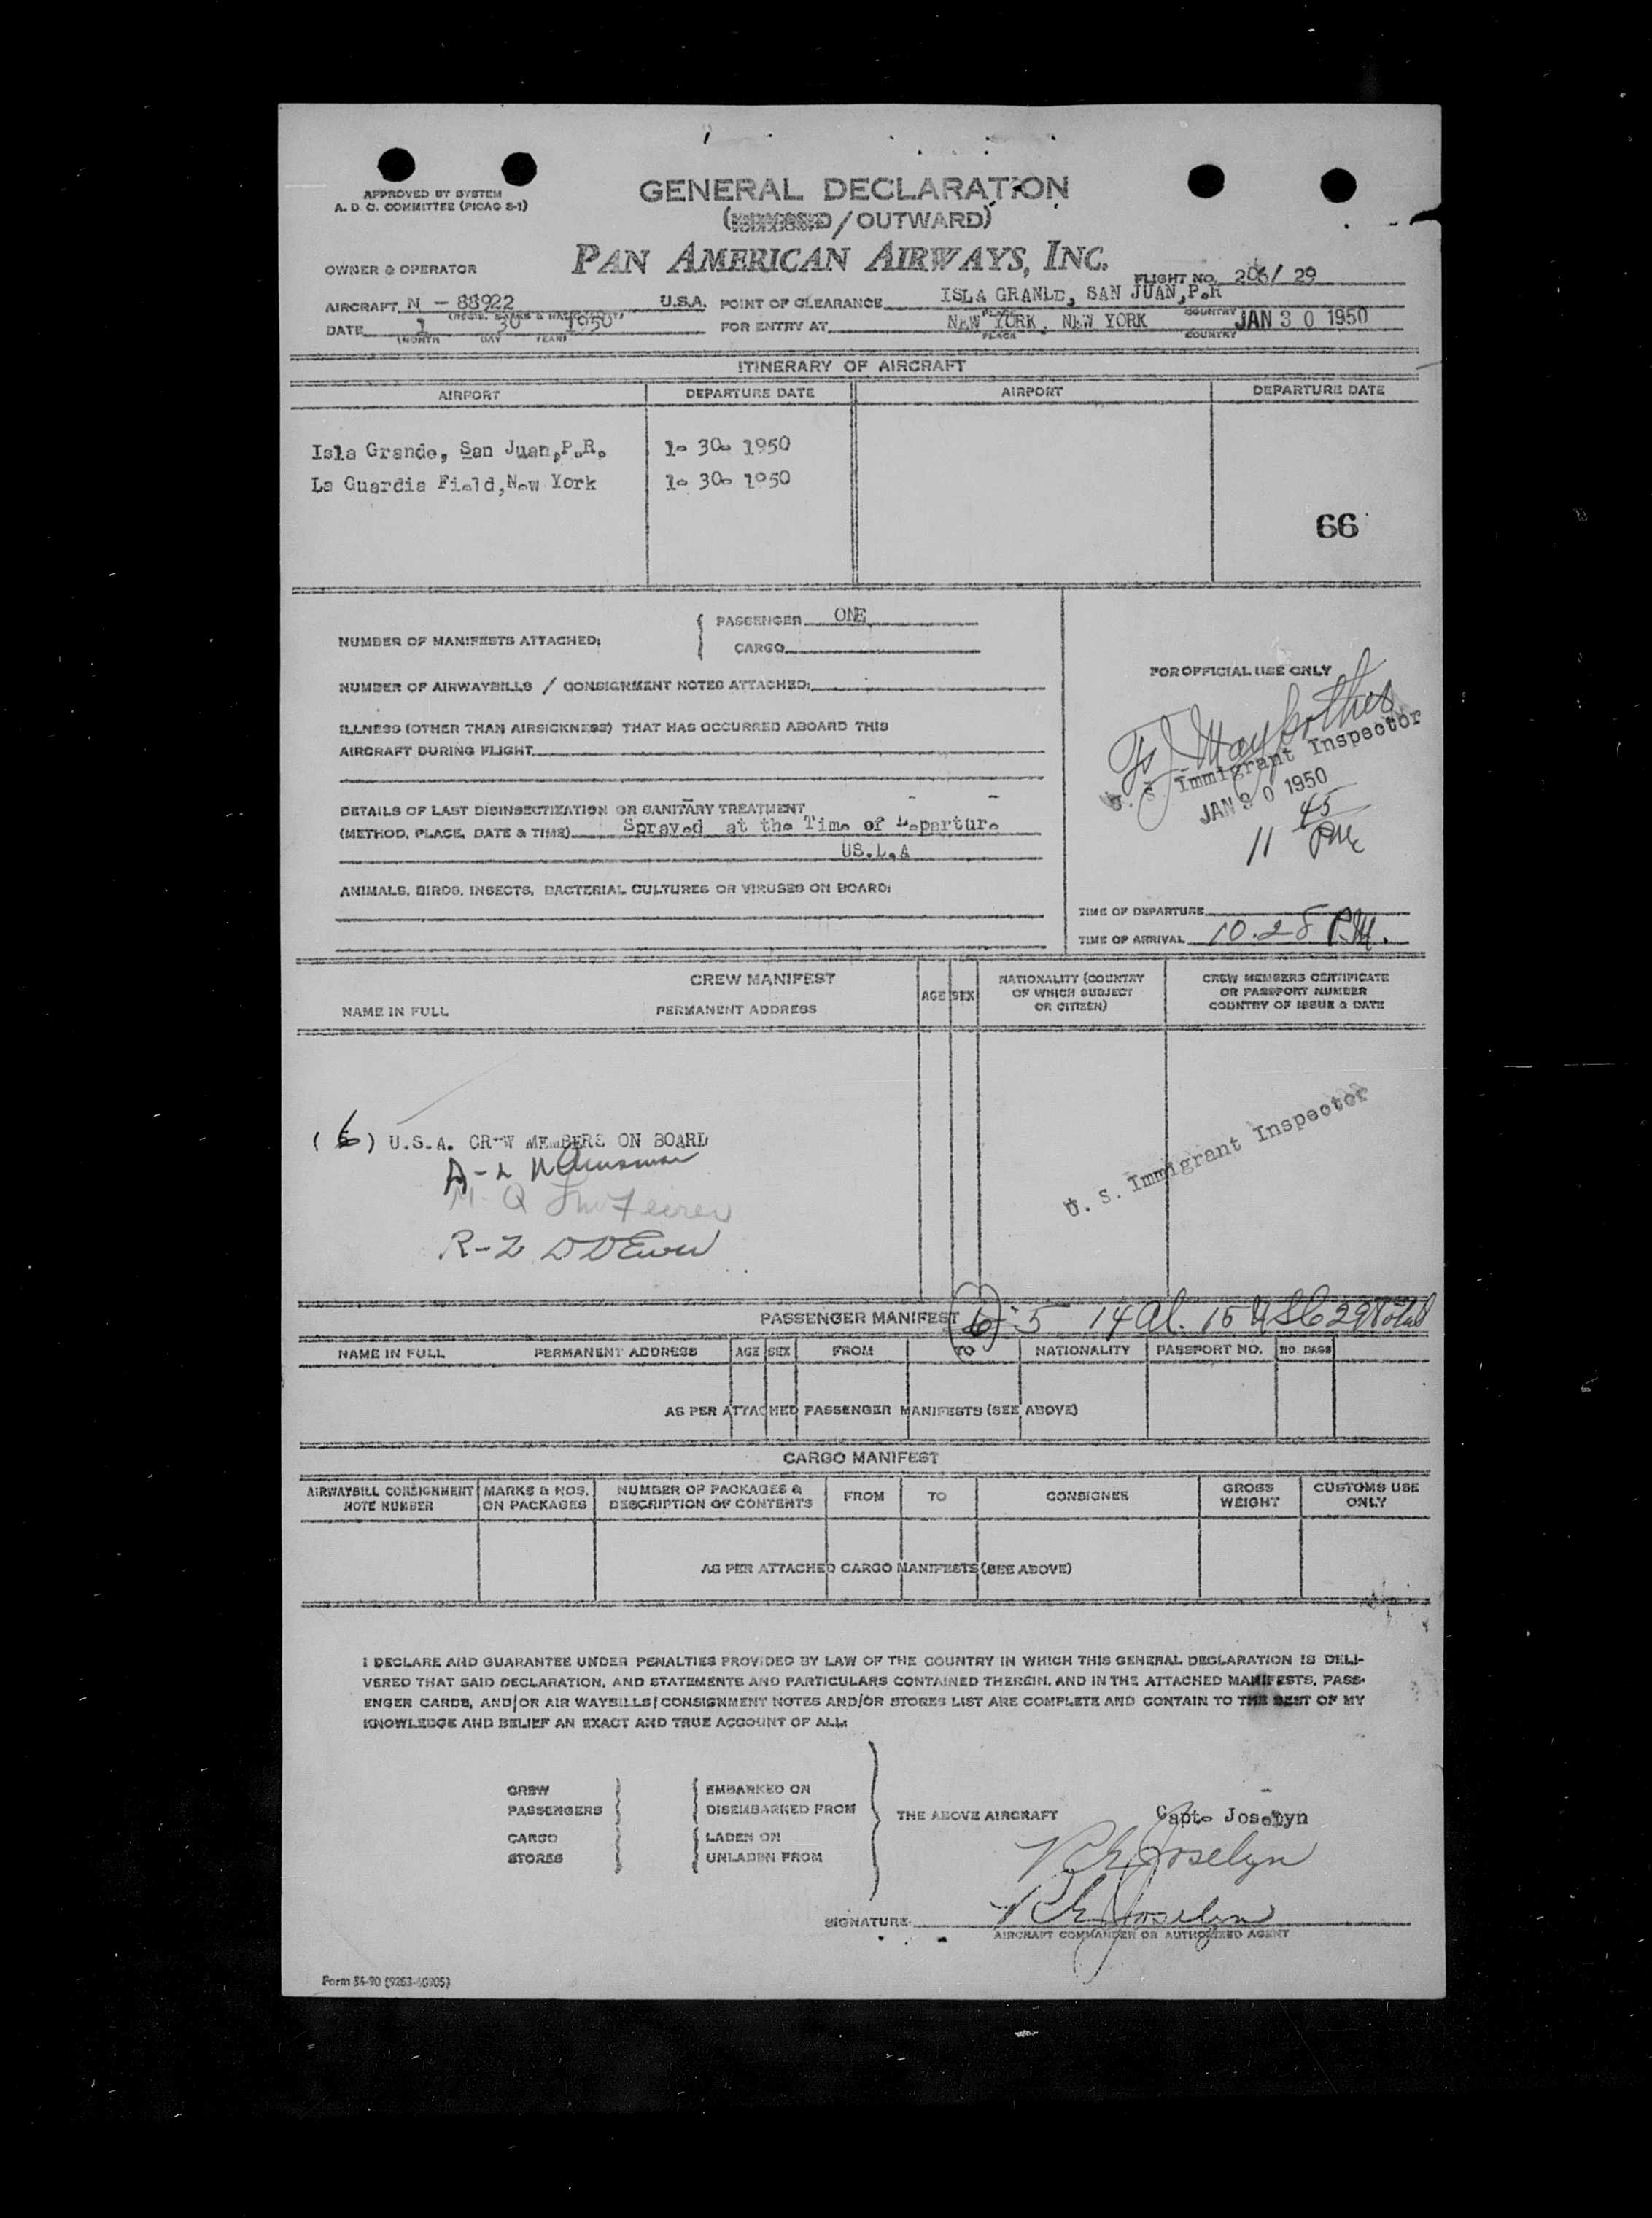 APPROVED BY SYSTEM
A. D. C. COMMITTEE (PICAO 2-1)
GENERAL DECLARATION
(/OUTWARD)
PAN AMERICAN AIRWAYS, INC.
OWNER & OPERATOR
FLIGHT NO. 206/ 29
AIRCRAFT N - 88922 U.S.A. POINT OF CLEARANCE ISLA GRANDE, SAN JUAN, P.R
DATE 1 30 1950 FOR ENTRY AT NEW YORK, NEW YORK JAN 30 1950
(MONTH DAY YEAR) PLACE COUNTRY
ITINERARY OF AIRCRAFT
AIRPORT DEPARTURE DATE AIRPORT DEPARTURE DATE
Isla Grande, San Juan,P.R. 1- 30- 1950
La Guardia Field,New York 1- 30- 1950
66
NUMBER OF MANIFESTS ATTACHED: PASSENGER ONE
CARGO
NUMBER OF AIRWAYBILLS / CONSIGNMENT NOTES ATTACHED:
ILLNESS (OTHER THAN AIRSICKNESS) THAT HAS OCCURRED ABOARD THIS
AIRCRAFT DURING FLIGHT
DETAILS OF LAST DISINSECTIZATION OR SANITARY TREATMENT
(METHOD, PLACE, DATE & TIME) Sprayed at the Time of Departure
ANIMALS, BIRDS, INSECTS, BACTERIAL CULTURES OR VIRUSES ON BOARD:
FOR OFFICIAL USE ONLY
U. S. Immigrant Inspector
JAN 30 1950
11 45 PM
TIME OF DEPARTURE
TIME OF ARRIVAL 10.28 P.M.
CREW MANIFEST
NAME IN FULL PERMANENT ADDRESS AGE SEX NATIONALITY (COUNTRY OF WHICH SUBJECT OR CITIZEN) CREW MEMBERS CERTIFICATE OR PASSPORT NUMBER COUNTRY OF ISSUE & DATE
(6) U.S.A. CREW MEMBERS ON BOARD
U. S. Immigrant Inspector
PASSENGER MANIFEST (6) - 5 14 Al. 15 USC 29 Total
NAME IN FULL PERMANENT ADDRESS AGE SEX FROM TO NATIONALITY PASSPORT NO. NO. BAGS
AS PER ATTACHED PASSENGER MANIFESTS (SEE ABOVE)
CARGO MANIFEST
AIRWAYBILL CONSIGNMENT NOTE NUMBER MARKS & NOS. ON PACKAGES NUMBER OF PACKAGES & DESCRIPTION OF CONTENTS FROM TO CONSIGNEE GROSS WEIGHT CUSTOMS USE ONLY
AS PER ATTACHED CARGO MANIFESTS (SEE ABOVE)
I DECLARE AND GUARANTEE UNDER PENALTIES PROVIDED BY LAW OF THE COUNTRY IN WHICH THIS GENERAL DECLARATION IS DELI-
VERED THAT SAID DECLARATION, AND STATEMENTS AND PARTICULARS CONTAINED THEREIN, AND IN THE ATTACHED MANIFESTS, PASS-
ENGER CARDS, AND/OR AIR WAYBILLS/CONSIGNMENT NOTES AND/OR STORES LIST ARE COMPLETE AND CONTAIN TO THE BEST OF MY
KNOWLEDGE AND BELIEF AN EXACT AND TRUE ACCOUNT OF ALL:
CREW EMBARKED ON
PASSENGERS DISEMBARKED FROM THE ABOVE AIRCRAFT Capt- Joselyn
CARGO LADEN ON
STORES UNLADEN FROM
R E Joselyn
SIGNATURE R E Joselyn
AIRCRAFT COMMANDER OR AUTHORIZED AGENT